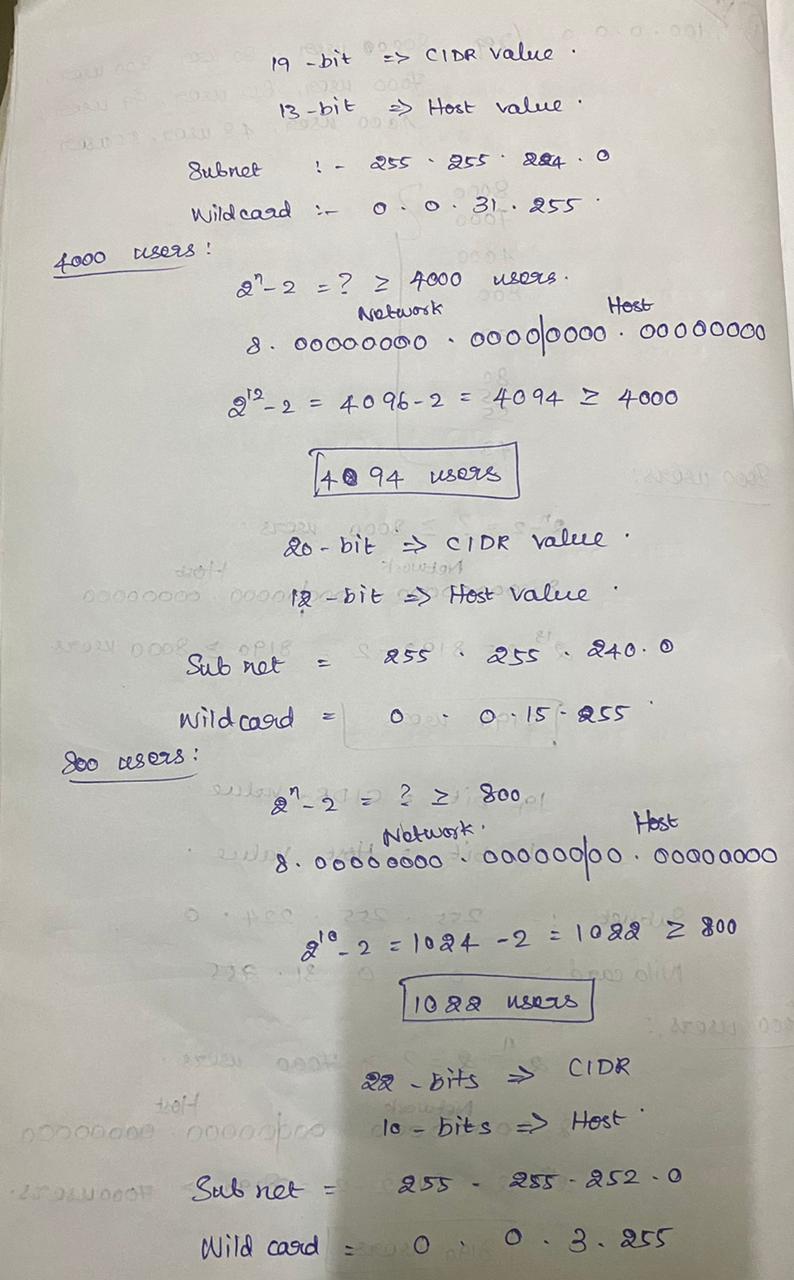 19 -bit => CIDR value .
13 -bit => Host value .
Subnet :- 255 . 255 . 224 . 0
Wildcard :- 0 . 0 . 31 . 255 .
4000 users :
2^n - 2 = ? ≥ 4000 users .
Network Host
8 . 00000000 . 0000|0000 . 00000000
2^12 - 2 = 4096 - 2 = 4094 ≥ 4000
4094 users
20 - bit => CIDR value .
12 - bit => Host value .
Sub net = 255 . 255 . 240 . 0
Wild card = 0 . 0 . 15 . 255 .
800 users :
2^n - 2 = ? ≥ 800
Network . Host
8 . 00000000 . 000000|00 . 00000000
2^10 - 2 = 1024 - 2 = 1022 ≥ 800
1022 users
22 - bits => CIDR
10 - bits => Host .
Sub net = 255 - 255 - 252 . 0
Wild card = 0 . 0 . 3 . 255